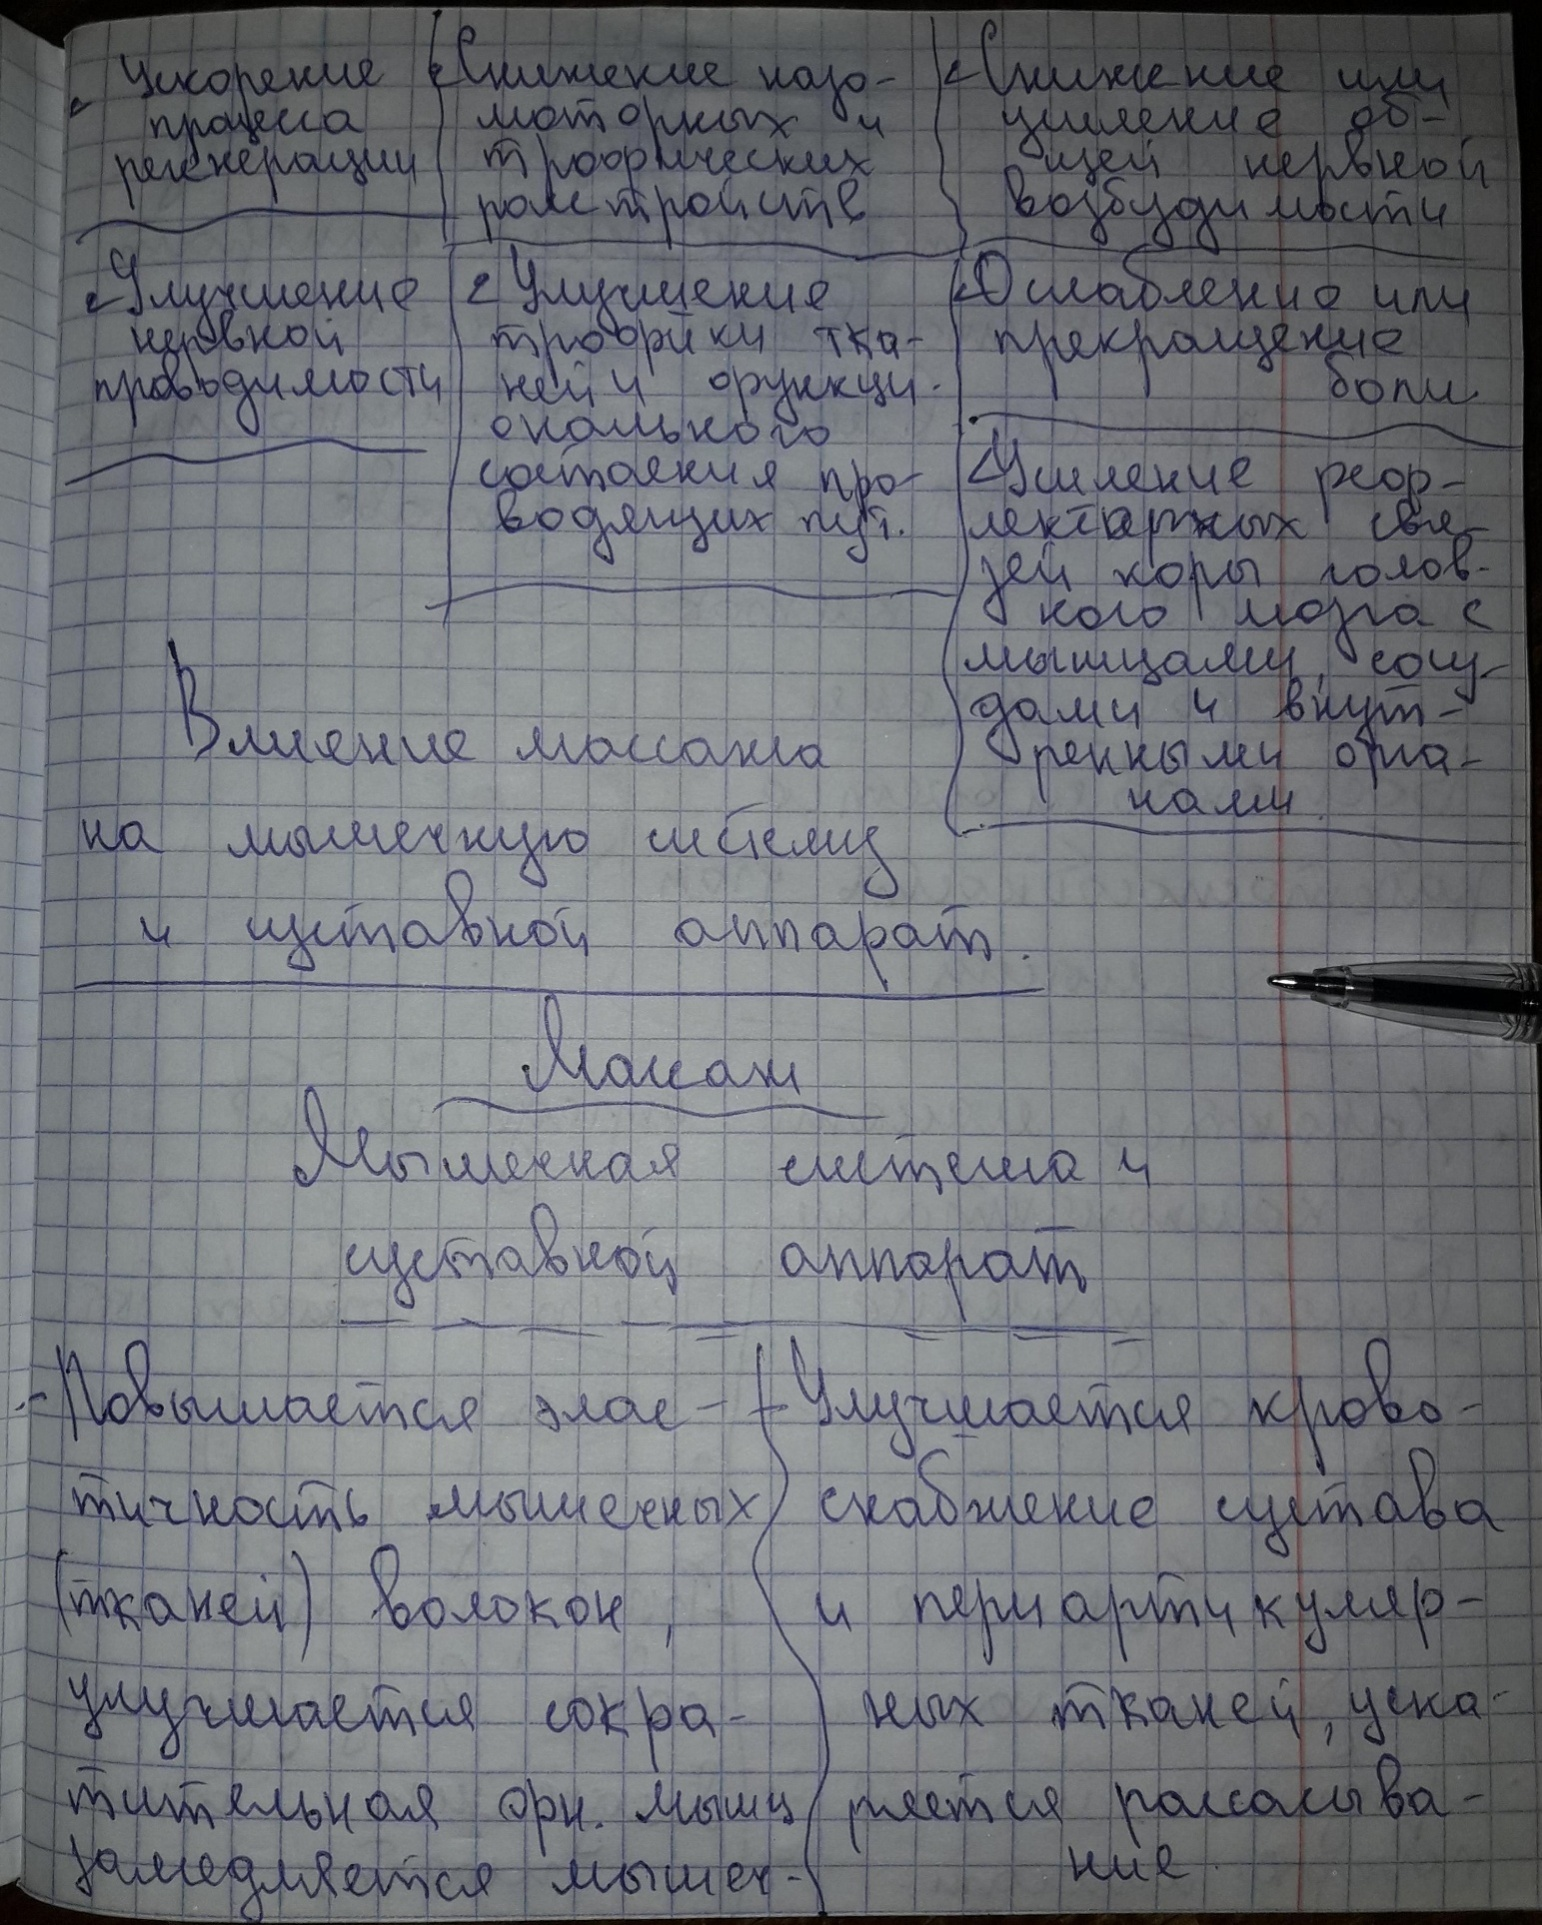 Ускорение
процесса
регенерации
Снижение вазо-
моторных и
трофических
расстройств
Снижение или
усиление об-
щей нервной
возбудимости
Улучшение
нервной
проводимости
Улучшение
трофики тка-
ней и функци-
онального
состояния про-
водящих пут.
Ослабление или
прекращение
боли
Усиление реф-
лекторных свя-
зей коры голов-
ного мозга с
мышцами, сосу-
дами и внут-
ренными орга-
нами.
Влияние массажа
на мышечную систему
и суставной аппарат.
Массаж
Мышечная система и
суставной аппарат
- Повышается элас-
тичность мышечных
(тканей) волокон,
улучшается сокра-
тительная фн. мышц
замедляется мышеч-
- Улучшается крово-
снабжение сустава
и периартикуляр-
ных тканей, уско-
ряется рассасыва-
ние